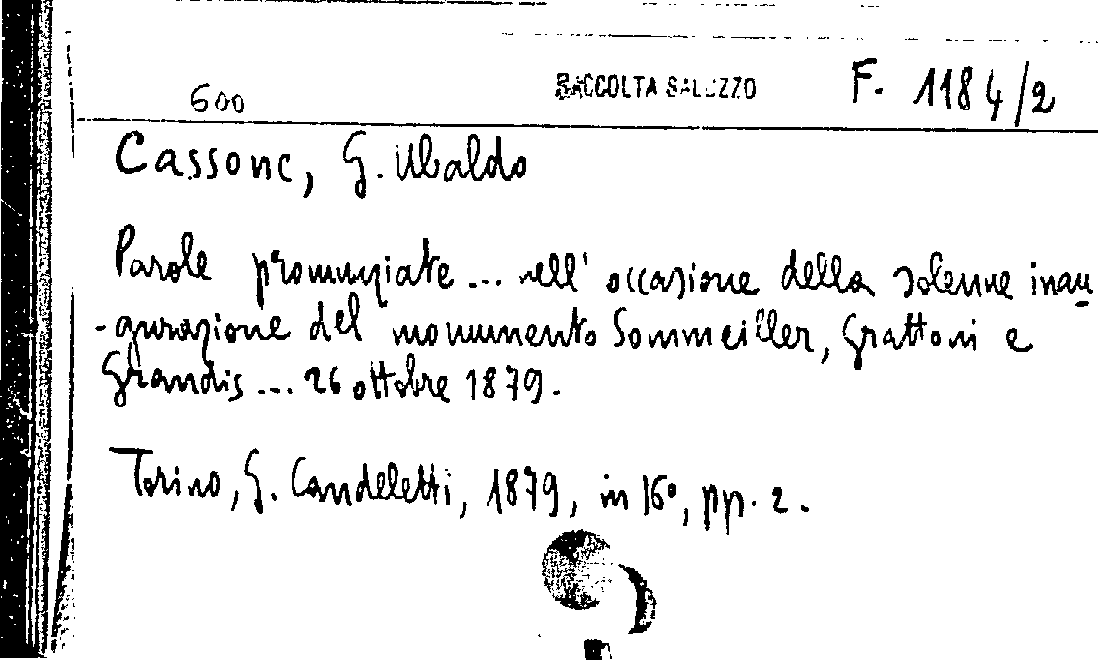 600 RACCOLTA SALUZZO F. 1184/2
Cassone, G. Ubaldo
Parole pronunziate ... nell' occasione della solenne inau
-gurazione del monumento Sommeiller, Grattoni e
Grandis ... 26 ottobre 1879.
Torino, G. Candeletti, 1879, in 16°, pp. 2.